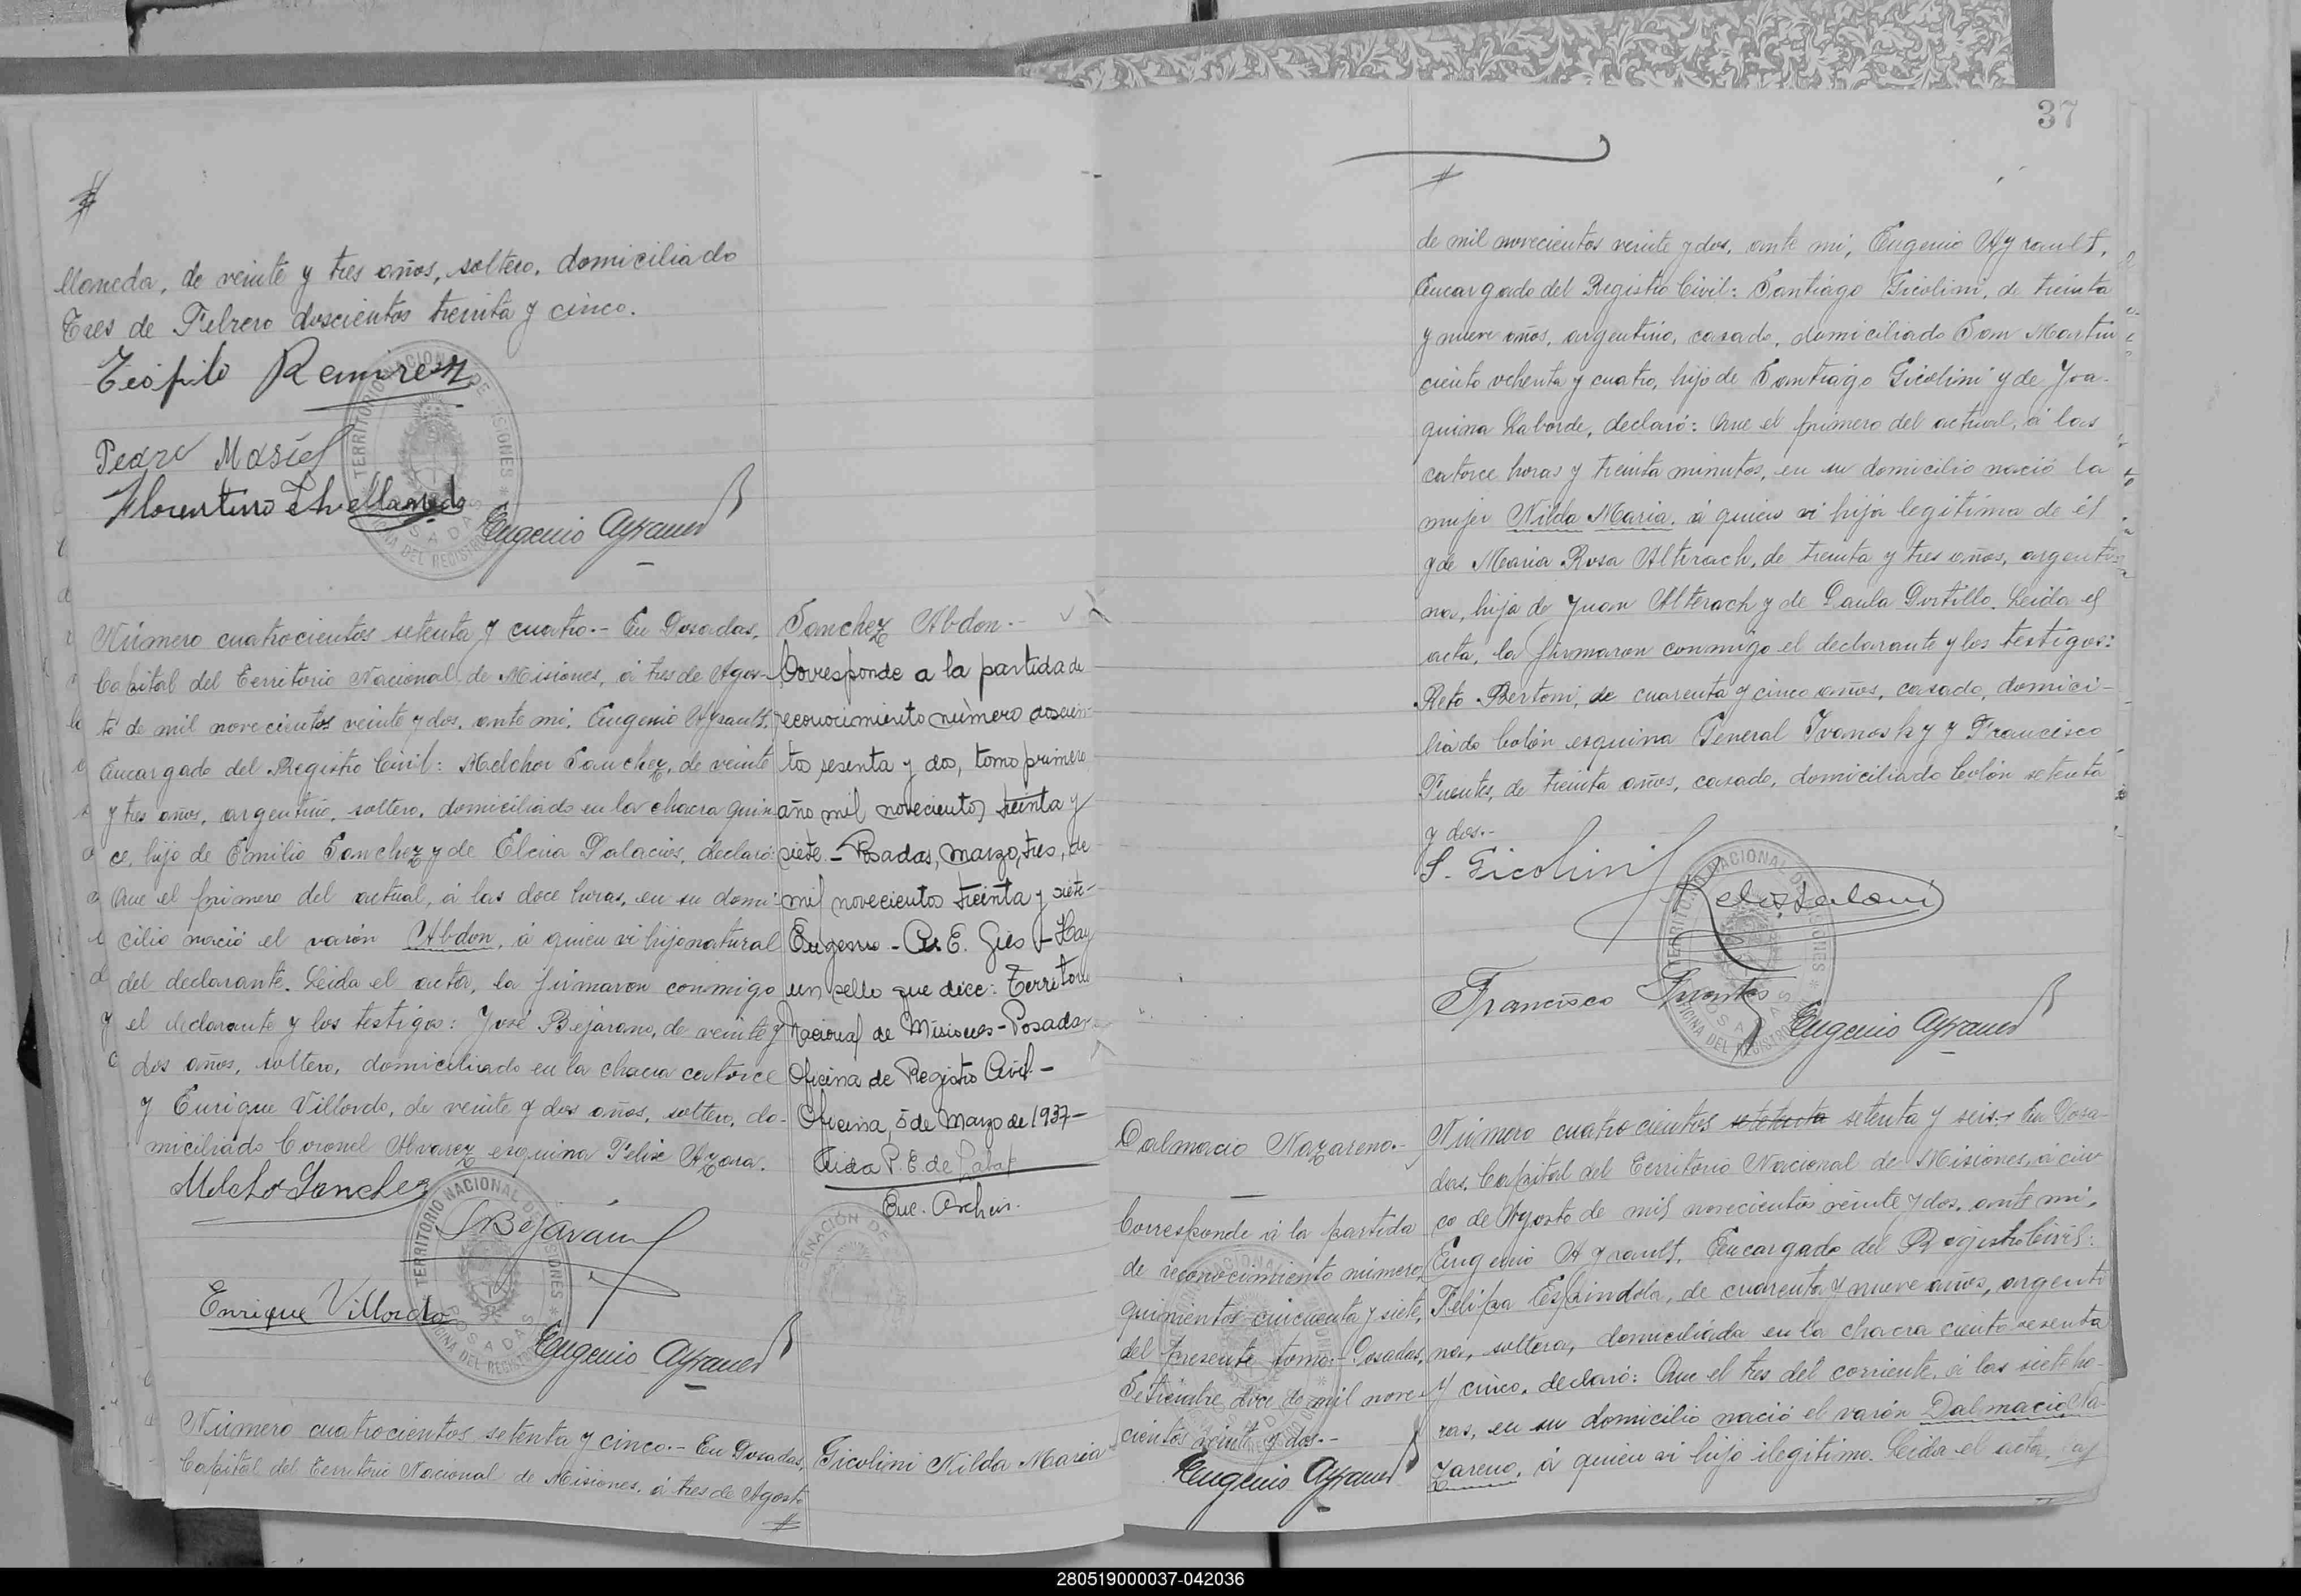 llaneda, de veinte y tres años, soltero, domiciliado
Tres de Febrero doscientos treinta y cinco.
Teófilo Ramirez
Pedro Masiel
Florentino
Eugenio Ayrault
Número cuatrocientos setenta y cuatro.- En Posadas,
Capital del Territorio Nacional de Misiones, á tres de Agos-
to de mil novecientos veinte y dos, ante mi, Eugenio Ayrault,
Encargado del Registro Civil: Melchor Sanchez, de veinte
y tres años, argentino, soltero, domiciliado en la chacra quin
ce, hijo de Emilio Sanchez y de Elena Palacios, declaró:
Que el primero del actual, á las doce horas, en su domi-
cilio nació el varón Abdon, á quien vi hijo natural
del declarante. Leida el acta, la firmaron conmigo
y el declarante y los testigos: José Bejarano, de veinte y
dos años, soltero, domiciliado en la chacra catorce
y Enrique Villordo, de veinte y dos años, soltero, do-
miciliado Coronel Alvarez esquina Felix Azara.
Melchor Sanchez
Enrique Villordo
Eugenio Ayrault
Sanchez Abdon.-
Corresponde a la partida de
reconocimiento número doscien-
tos sesenta y dos, tomo primero
año mil novecientos treinta y
siete.- Posadas, marzo, tres, de
mil novecientos treinta y siete-
Hay
un sello que dice: Territorio
Nacional de Misiones-Posadas
Oficina de Registro Civil-
Oficina, 5 de Marzo de 1937-
Aida P. E. de
Enc. Archivo.
Número cuatrocientos setenta y cinco.- En Posadas,
Capital del Territorio Nacional de Misiones, á tres de Agosto
Gicolini Nilda Maria
37
de mil novecientos veinte y dos, ante mi, Eugenio Ayrault,
Encargado del Registro Civil: Santiago Gicolini, de treinta
y nueve años, argentino, casado, domiciliado San Martin
ciento ochenta y cuatro, hijo de Santiago Gicolini y de Joa-
quina Laborde, declaró: Que el primero del actual, á las
catorce horas y treinta minutos, en su domicilio nació la
mujer Nilda Maria, á quien vi hija legitima de él
y de Maria Rosa Alterach, de treinta y tres años, argenti-
na, hija de Juan Alterach y de Paula Portillo. Leida el
acta, la firmaron conmigo el declarante y los testigos:
Reto Bertoni, de cuarenta y cinco años, casado, domici-
liado Colón esquina General Ivanosky y Francisco
Fuentes, de treinta años, casado, domiciliado Colón setenta
y dos.-
S. Gicolini
Francisco Fuentes
Eugenio Ayrault
Dalmacio Nazareno.-
Corresponde á la partida
de reconocimiento número
quinientos cincuenta y siete,
del presente tomo.- Posadas,
Setiembre doce de mil nove-
cientos veinte y dos.-
Eugenio Ayrault
Número cuatrocientos setenta setenta y seis.- En Posa-
das, Capital del Territorio Nacional de Misiones, á cin-
co de Agosto de mil novecientos veinte y dos, ante mi,
Eugenio Ayrault, Encargado del Registro Civil:
Felipa Espindola, de cuarenta y nueve años, argenti
na, soltera, domiciliada en la chacra ciento sesenta
y cinco, declaró: Que el tres del corriente, á las siete ho-
ras, en su domicilio nació el varón Dalmacio Na-
zareno, á quien vi hijo ilegitimo. Leida el acta, la f
280519000037-042036